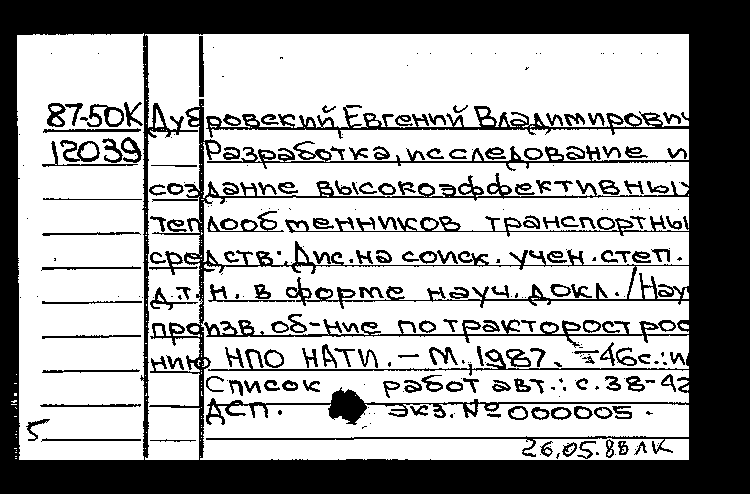 87-50К Дубровский, Евгений Владимирович
12039 Разработка, исследование и
создание высокоэффективных
теплообменников транспортны
средств: Дис. на соиск. учен. степ.
д.т.н. в форме науч. докл. / Нау
произв. об-ние по тракторострое
нию НПО НАТИ. – М., 1987. – 46с.: и
Список работ авт.: с. 38-42
ДСП. экз. № 000005.
5
26.05.88 ЛК